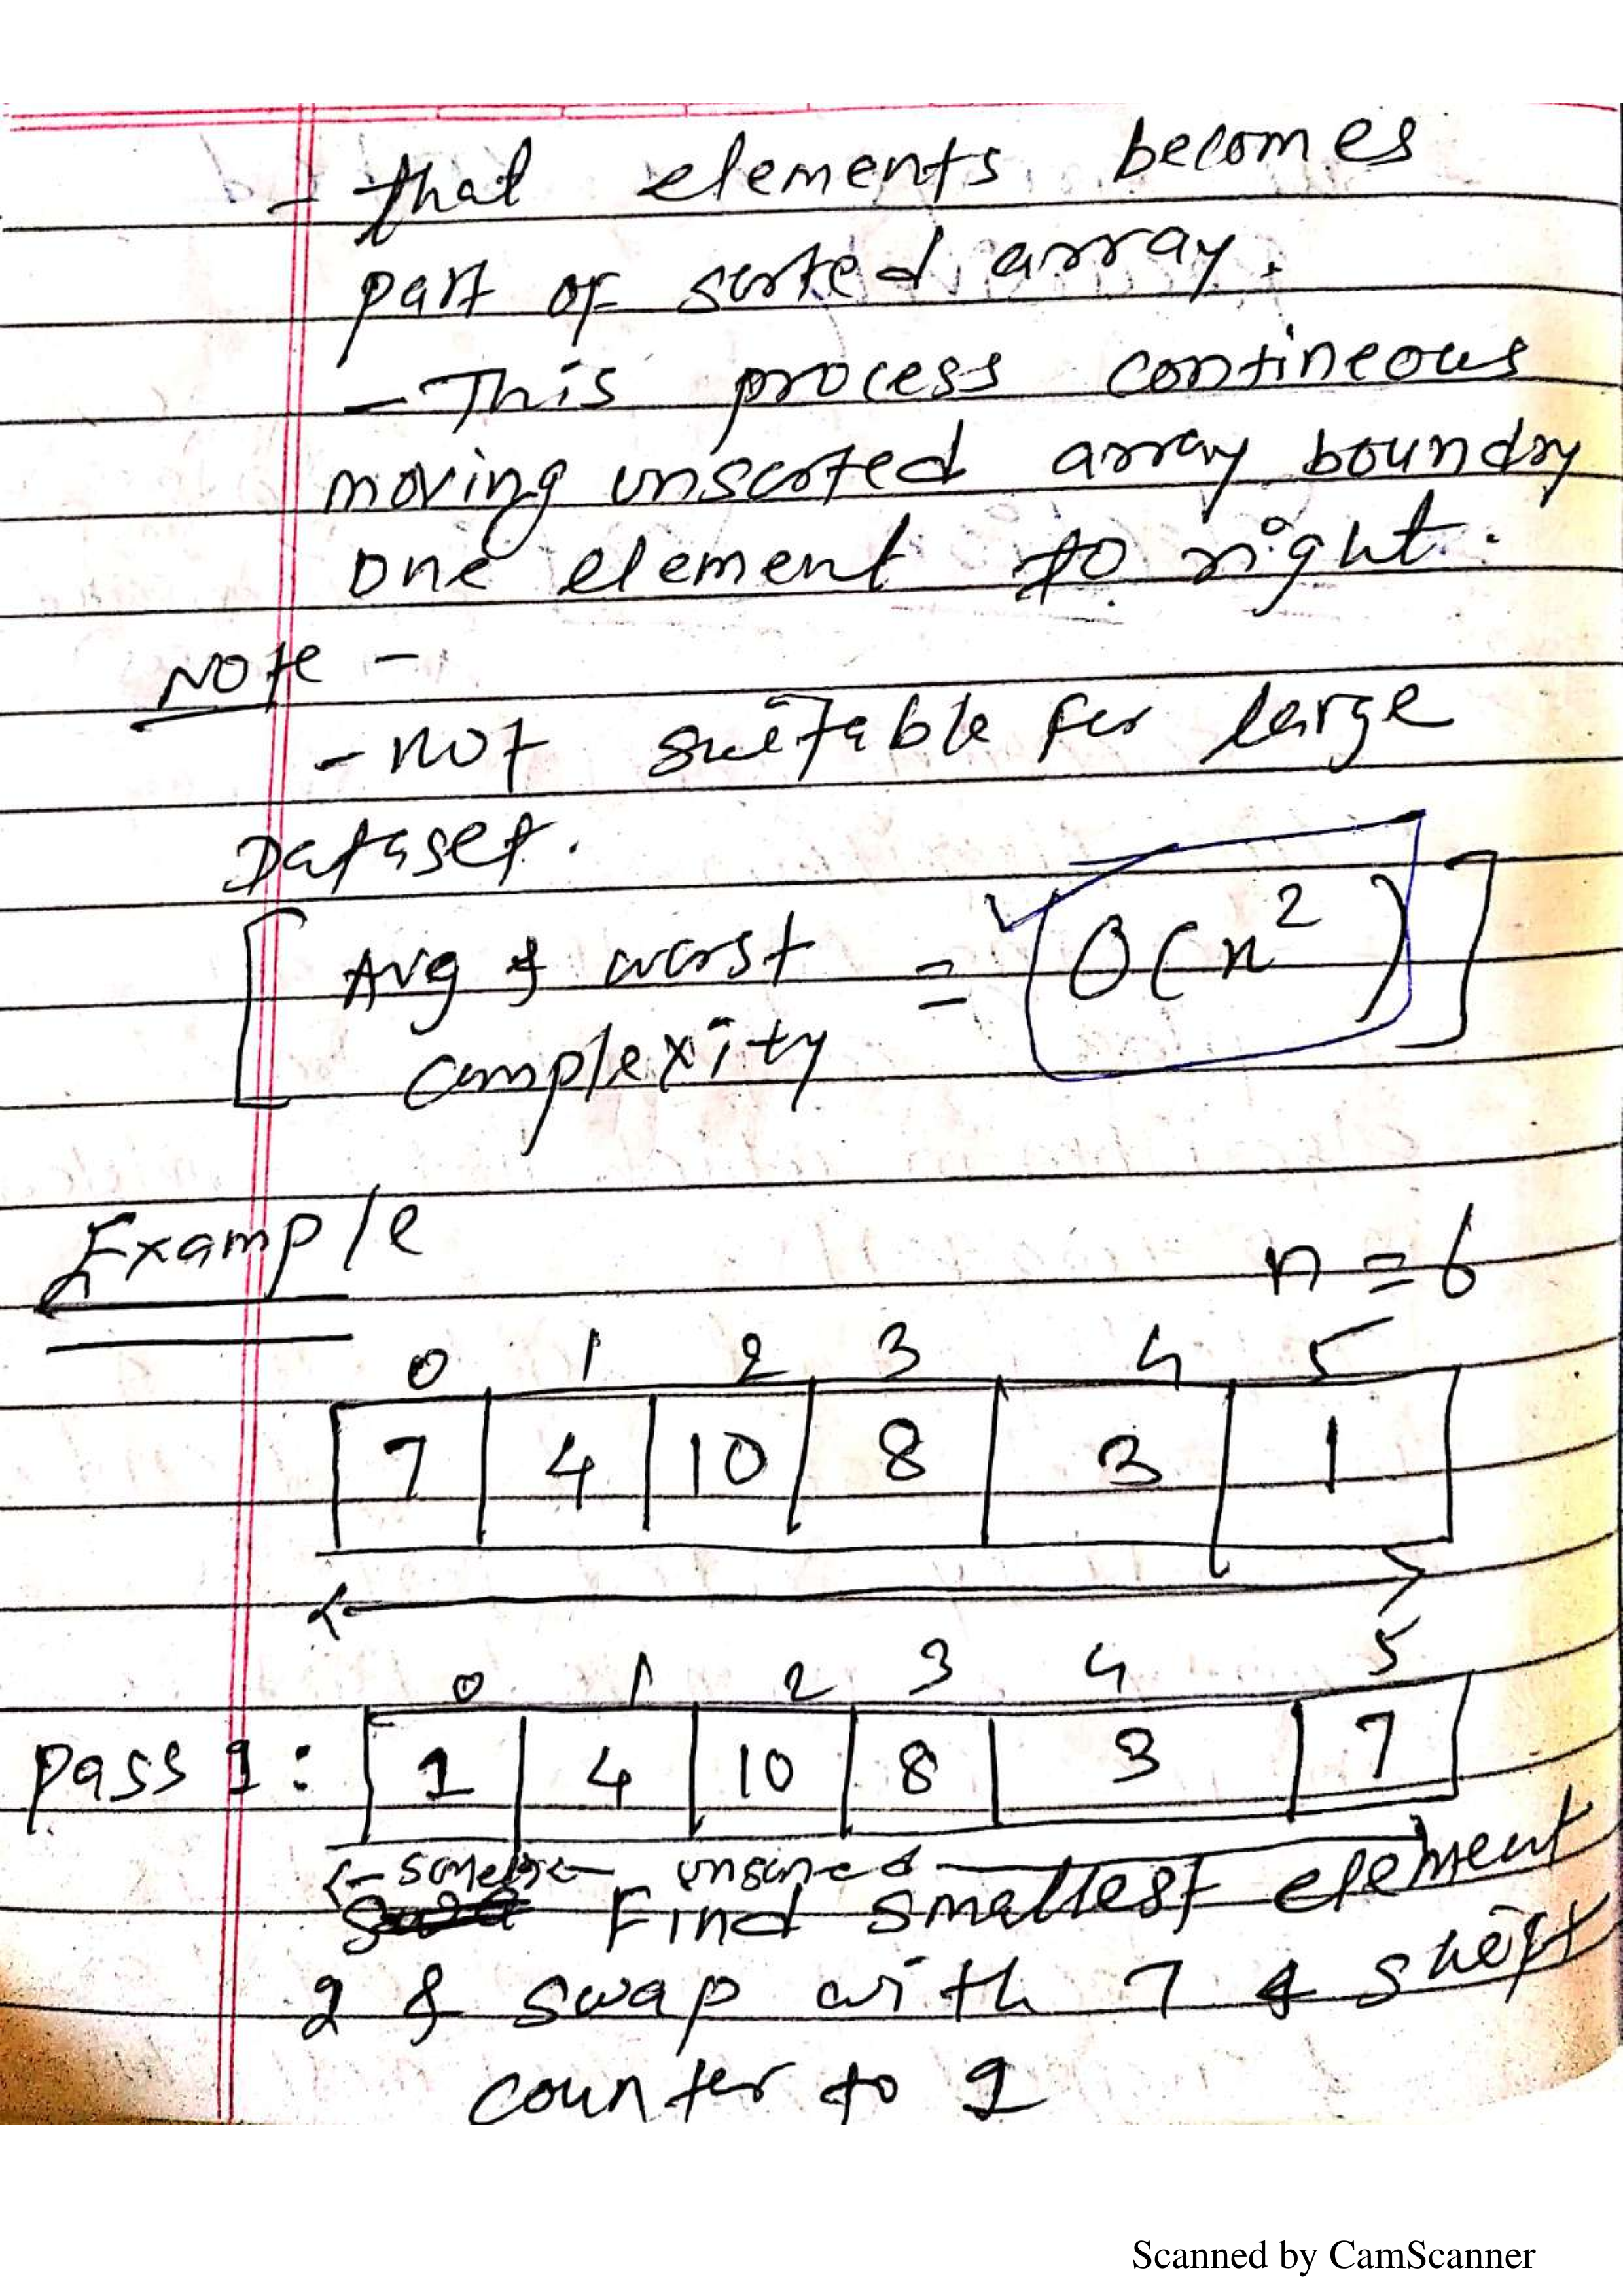 - that elements becomes
part of sorted array.
- This process contineous
moving unsorted array boundry
one element to right.
Note -
- not suitable for large
Dataset.
[ Avg & worst = O(n²) ]
complexity
Example
n = 6
0 1 2 3 4 5
7 4 10 8 3 1
0 1 2 3 4 5
pass 1: 1 4 10 8 3 7
unsorted
Find smallest element
1 & swap with 7 & shift
counter to 1
Scanned by CamScanner